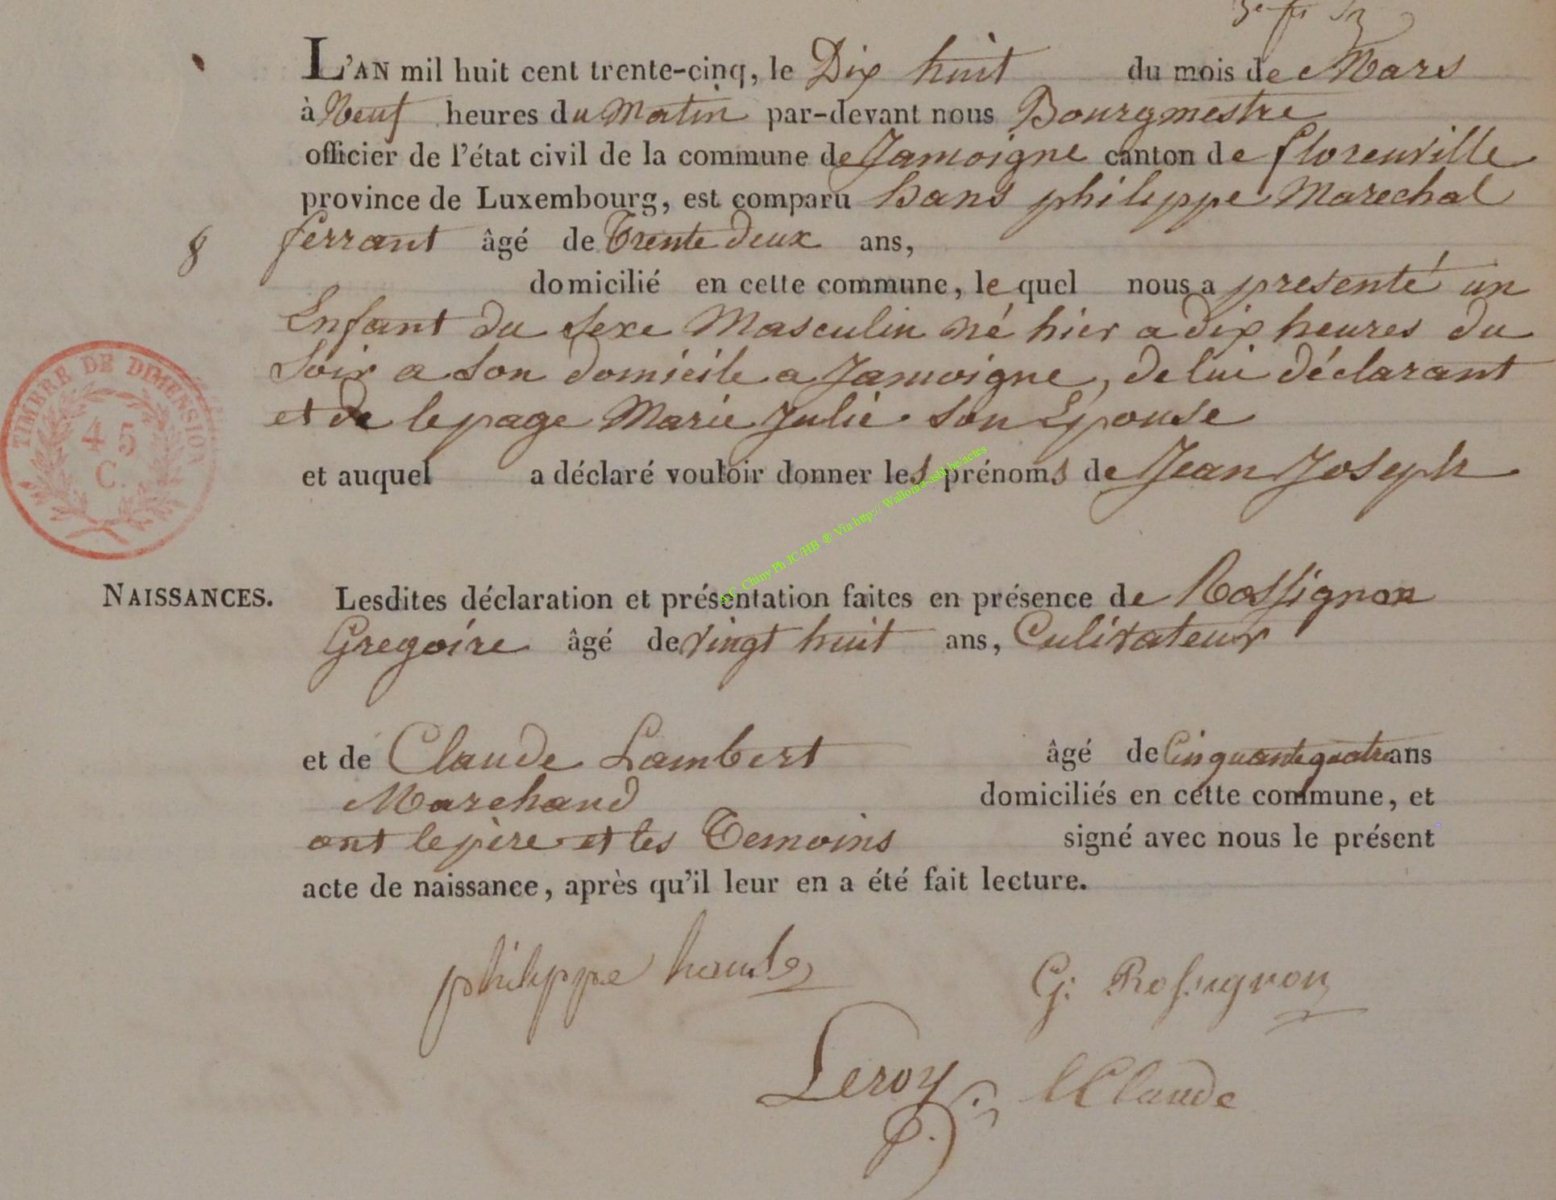 L'AN mil huit cent trente-cinq, le Dix huit du mois de Mars
à Neuf heures du Matin par-devant nous Bourgmestre
officier de l'état civil de la commune de Jamoigne canton de florenville
province de Luxembourg, est comparu hans philippe Marechal
8 ferrant âgé de Trente deux ans,
domicilié en cette commune, le quel nous a presenté un
Enfant du sexe Masculin né hier a dix heures du
Soir a son domicile a Jamoigne, de lui déclarant
et de lepage Marie Julie son Epouse
et auquel a déclaré vouloir donner les prénoms de Jean Joseph
TIMBRE DE DIMENSION
45
C.
NAISSANCES. Lesdites déclaration et présentation faites en présence de Rossignon
Gregoire âgé de vingt huit ans, Cultivateur
et de Claude Lambert âgé de Cinquante quatre ans
Marchand domiciliés en cette commune, et
ont le père et les Temoins signé avec nous le présent
acte de naissance, après qu'il leur en a été fait lecture.
philippe hans G: Rossignon
Leroy LClaude